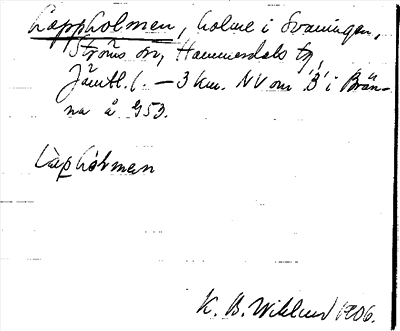 Lappholmen, holme i Svaningen,
Ströms sn, Hammerdals tg,
Jämtl. l. — 3 km. NV om 'B' i Brän-
na å G53.
Lapholman
K. B. Wiklund 1906.